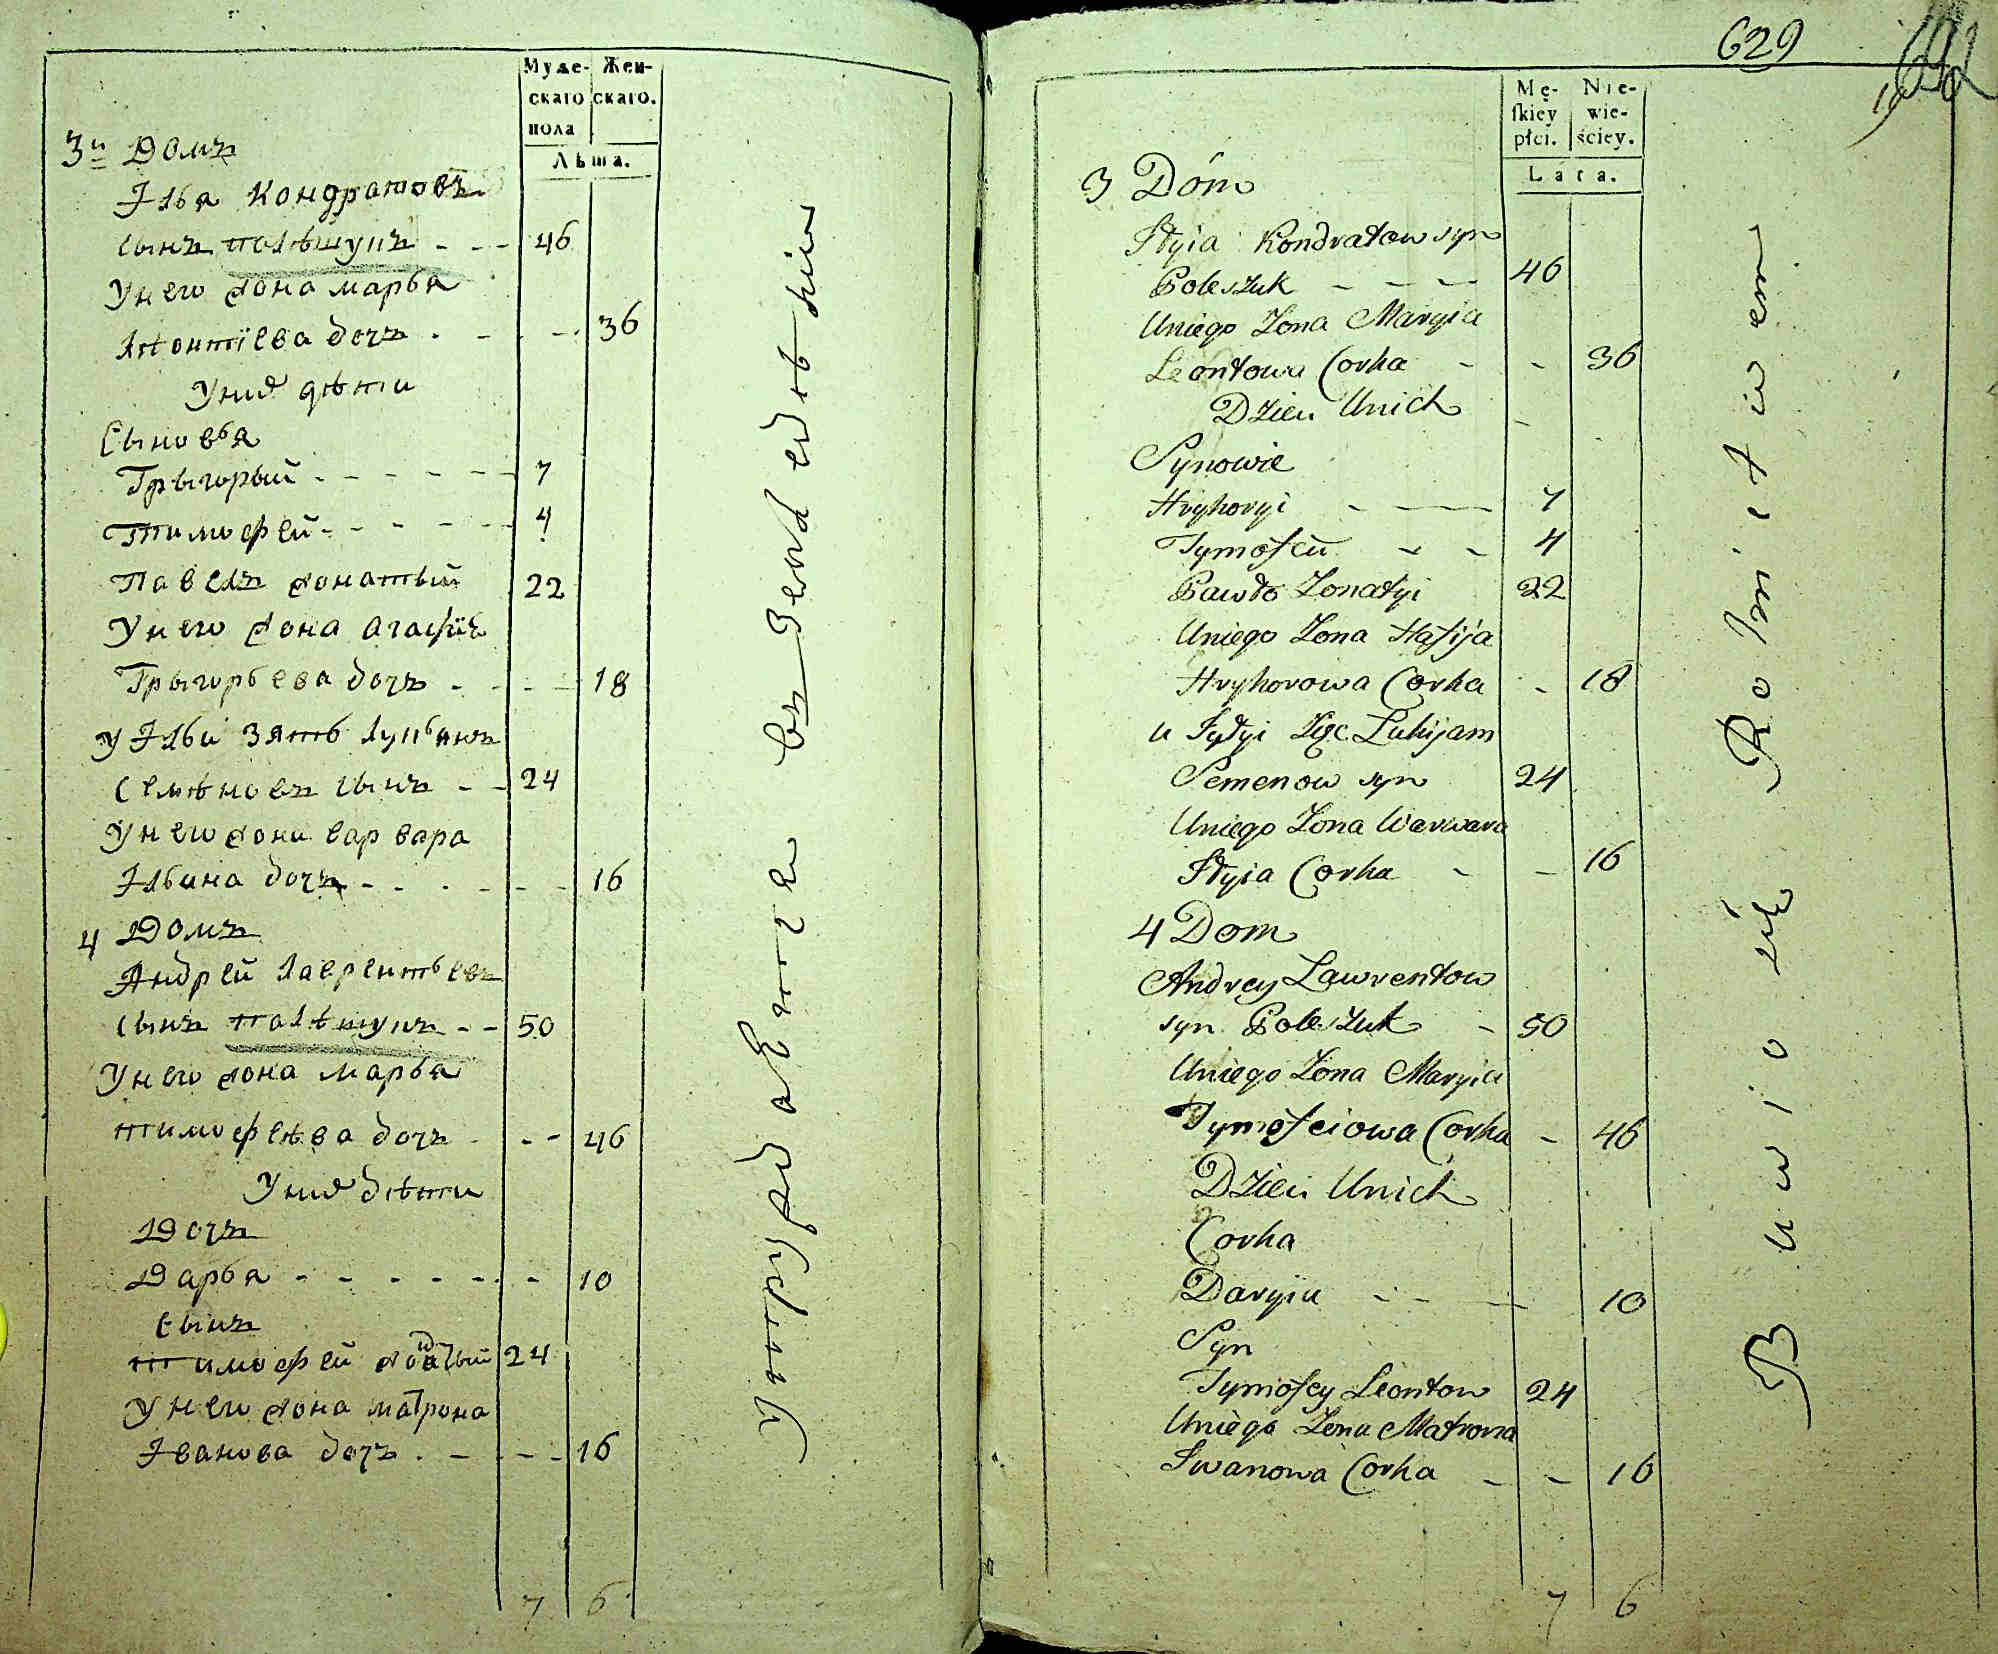 Муже-
скаго
пола
Жен-
скаго.
Лѣта.
3й Домъ
Илья Кондратовъ
сынъ полѣшукъ - - - 46
У него жона марья
Леонтіева дочъ . - - - 36
У них дѣти
Сыновья
Грыгорый - - - - - 7
Тимофей - - - - - 4
Павелъ жонатый 22
У него жона агафія
Грыгорьева дочъ . - - - 18
у Ильи зять лукьянъ
Семѣновъ сынъ - - 24
У него жона варвара
Ильина дочъ - - - - - 16
4 Домъ
Андрей лаврентьевъ
сынъ полѣшукъ - - 50
У него жона марья
тимофѣева дочъ - - - 46
У них дѣти
Дочъ
Дарья - - - - - - 10
Сынъ
тимофей жонатый 24
У него жона матрона
Иванова дочъ . - - - 16
7 6
У оттруд а Е тт ся въ Земледѣліи
629
Mę-
skiey
płci.
Nie-
wie-
ściey.
Lata.
3 Dóm
Jłyia Kondratow syn
Poleszuk - - - - 46
Uniego Zona Maryia
Leontowa Corka - - 36
Dzieci Unich
Synowie
Hryhoryi - - - 7
Tymofeii - - 4
Pawło Zonatyi 22
Uniego Zona Hafija
Hryhorowa Corka - 18
u Jyłyi Zęc Lukijam
Semenow syn 24
Uniego Zona Warwara
Jłyia Corka - - 16
4 Dom
Andrey Lawrentow
syn Poleszuk - 50
Uniego Zona Maryia
Tymofeiowa Corka - 46
Dzieci Unich
Corka
Daryia - - - 10
Syn
Tymofey Leontow 24
Uniego Zona Matrona
Jwanowa Corka - - 16
7 6
Bawią się Rolnictwem